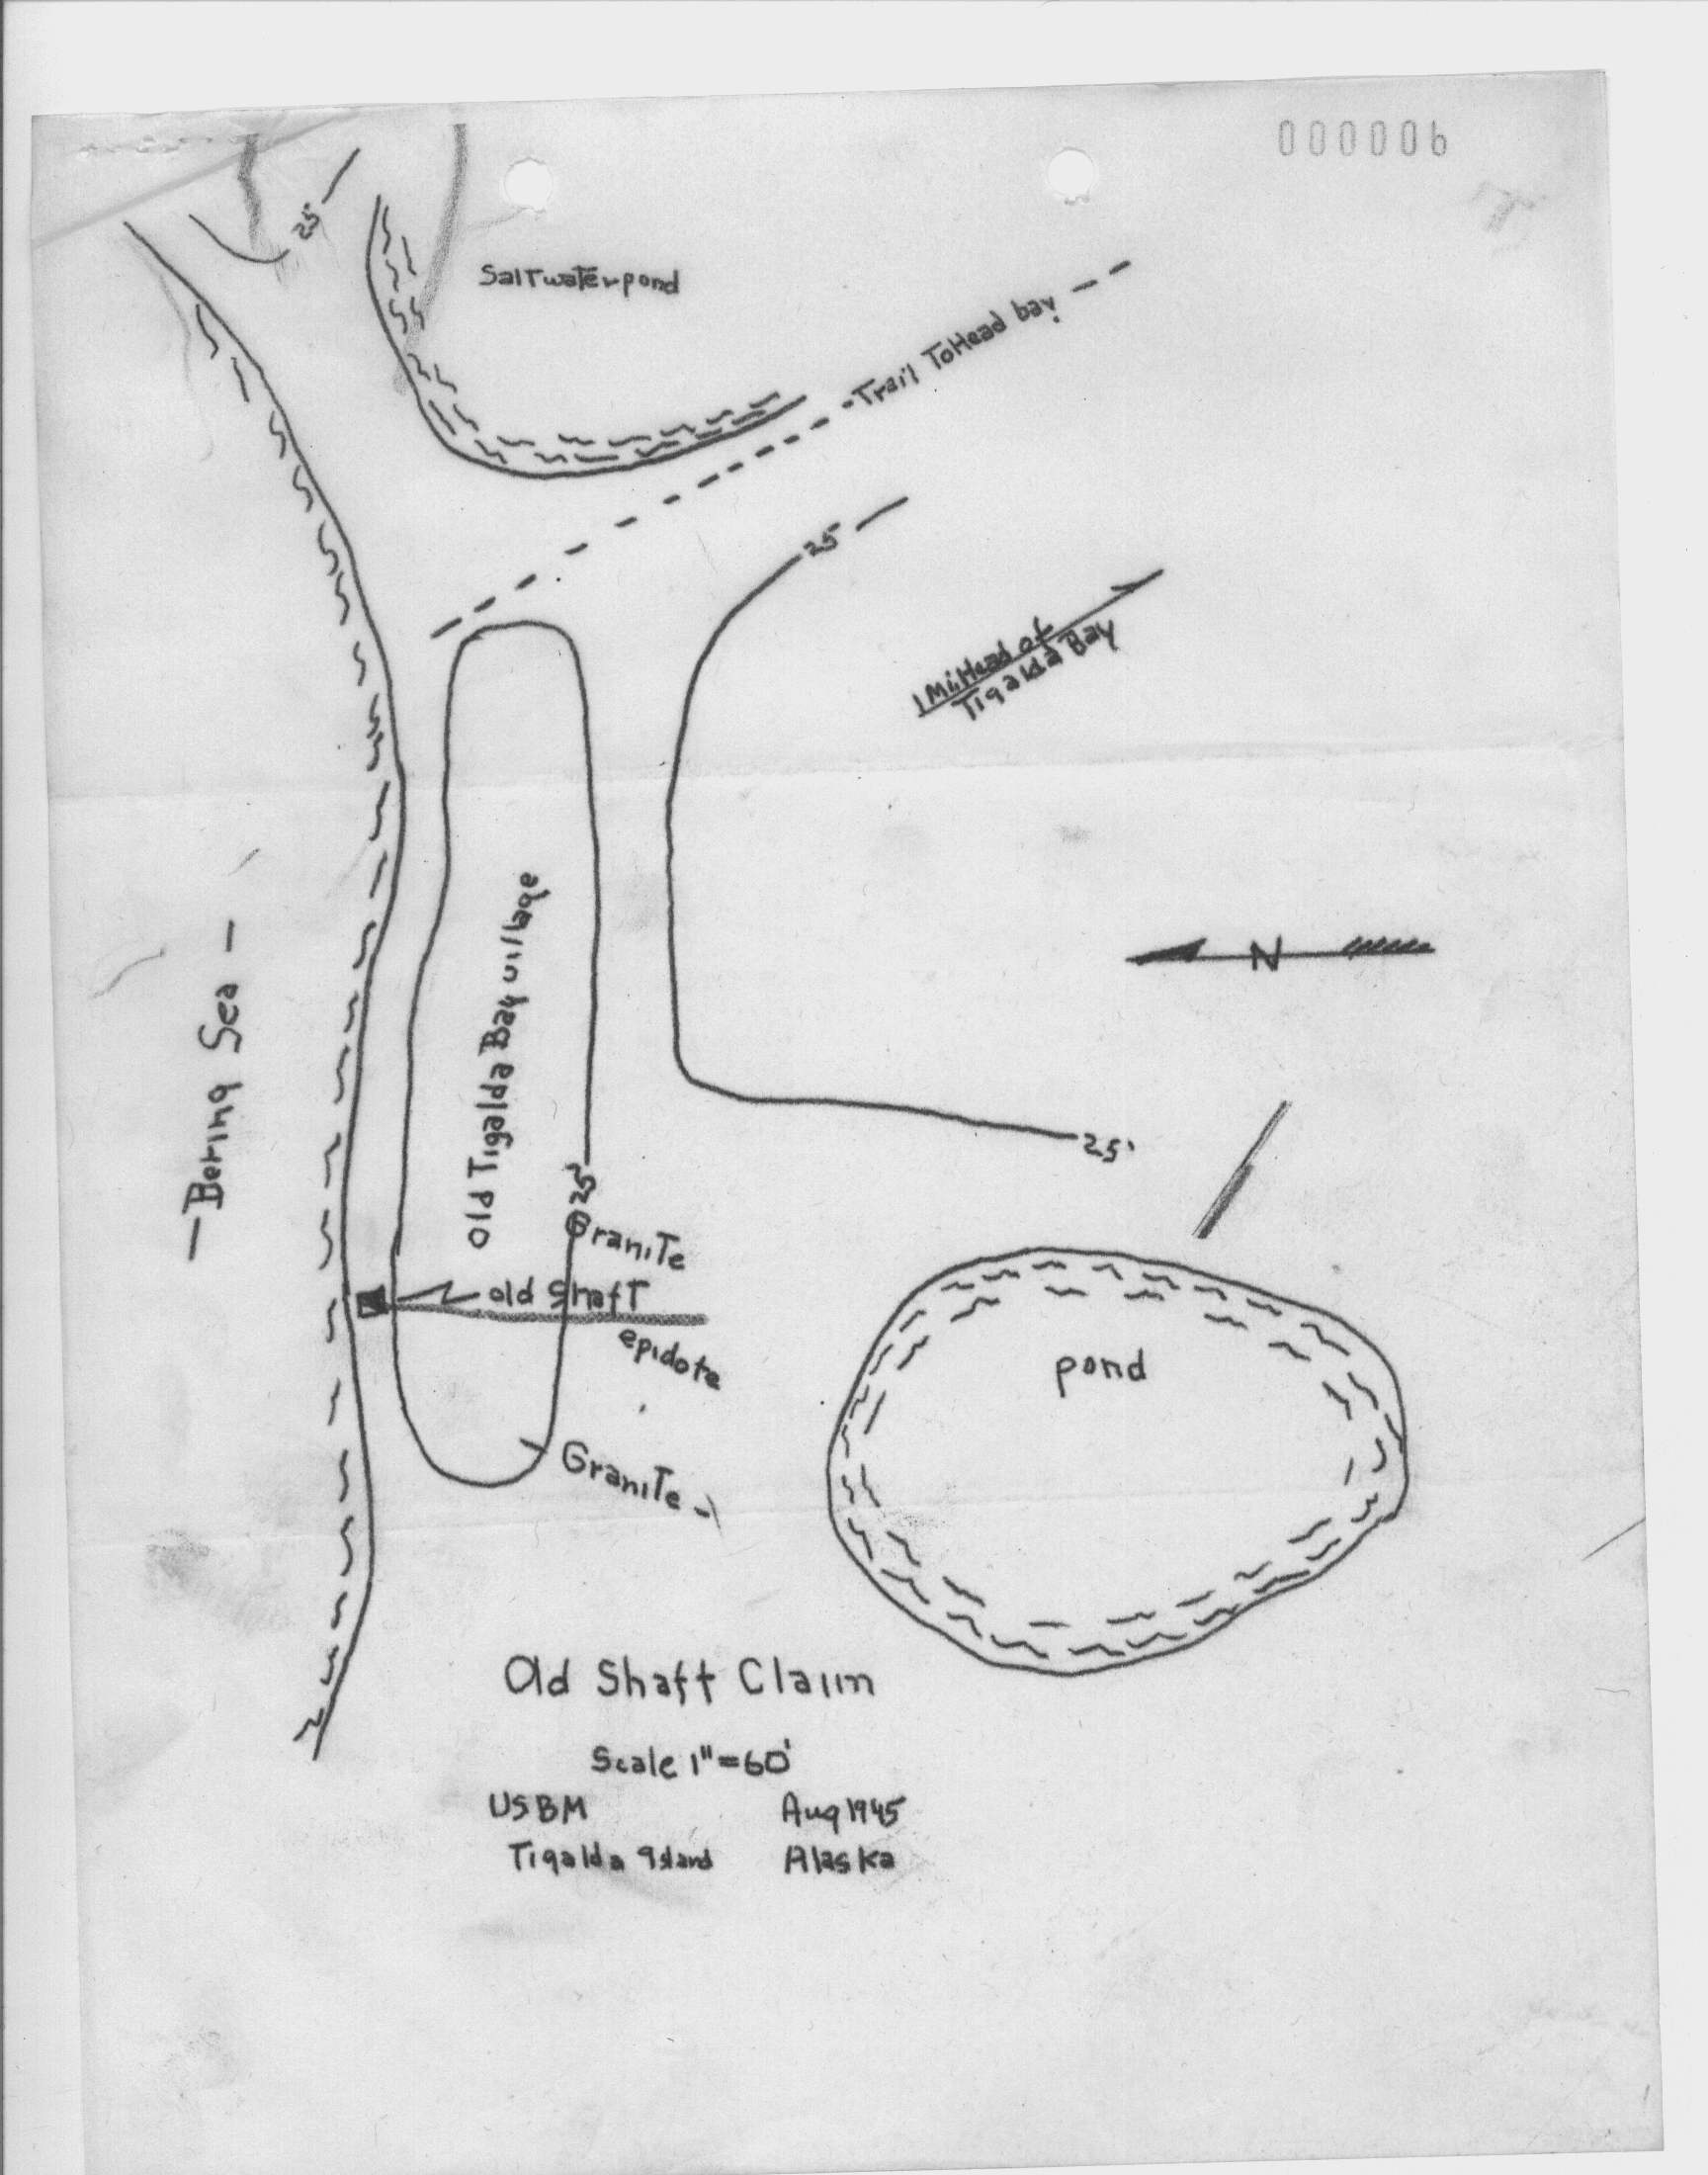 000006
25'
Saltwater pond
Trail To Head bay
25'
1 Mi. Head of
Tigalda Bay
N
- Bering Sea -
Old Tigalda Bay village
25'
25'
Granite
old shaft
epidote
pond
Granite
Old Shaft Claim
Scale 1"=60'
USBM Aug 1945
Tigalda Island Alaska